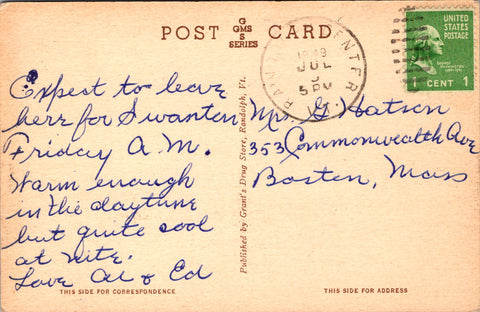 POST CARD
G
GMS
S
SERIES
UNITED
STATES
POSTAGE
GEORGE
WASHINGTON
1 CENT 1
CENTER
JUL
5 PM
Expect to leave
here for Swanton
Friday A.M.
Warm enough
in the daytime
but quite cool
at nite.
Love Al & Ed
Watson
353 Commonwealth Ave
Boston, Mass
Published by Grant's Drug Store, Randolph, Vt.
THIS SIDE FOR CORRESPONDENCE
THIS SIDE FOR ADDRESS